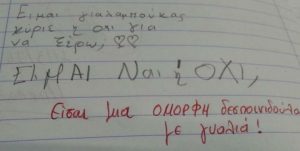 Ειμαι γιαλαμπουκας
κύριε ή οχι για
να ξέρω; ♡♡
ΕΙΜΑΙ Ναι ή ΟΧΙ;
Εισαι μια ΟΜΟΡΦΗ δεσποινιδούλα
με γυαλιά!